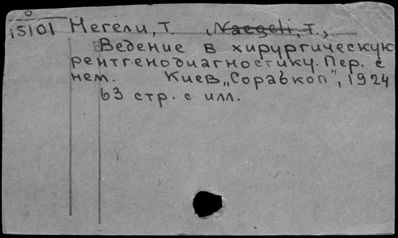 15101 Негели, Т. Naegeli, T.,
Ведение в хирургическую
рентгенодиагностику. Пер. с
нем. Киев, „Сорабкоп", 1924
63 стр. с илл.